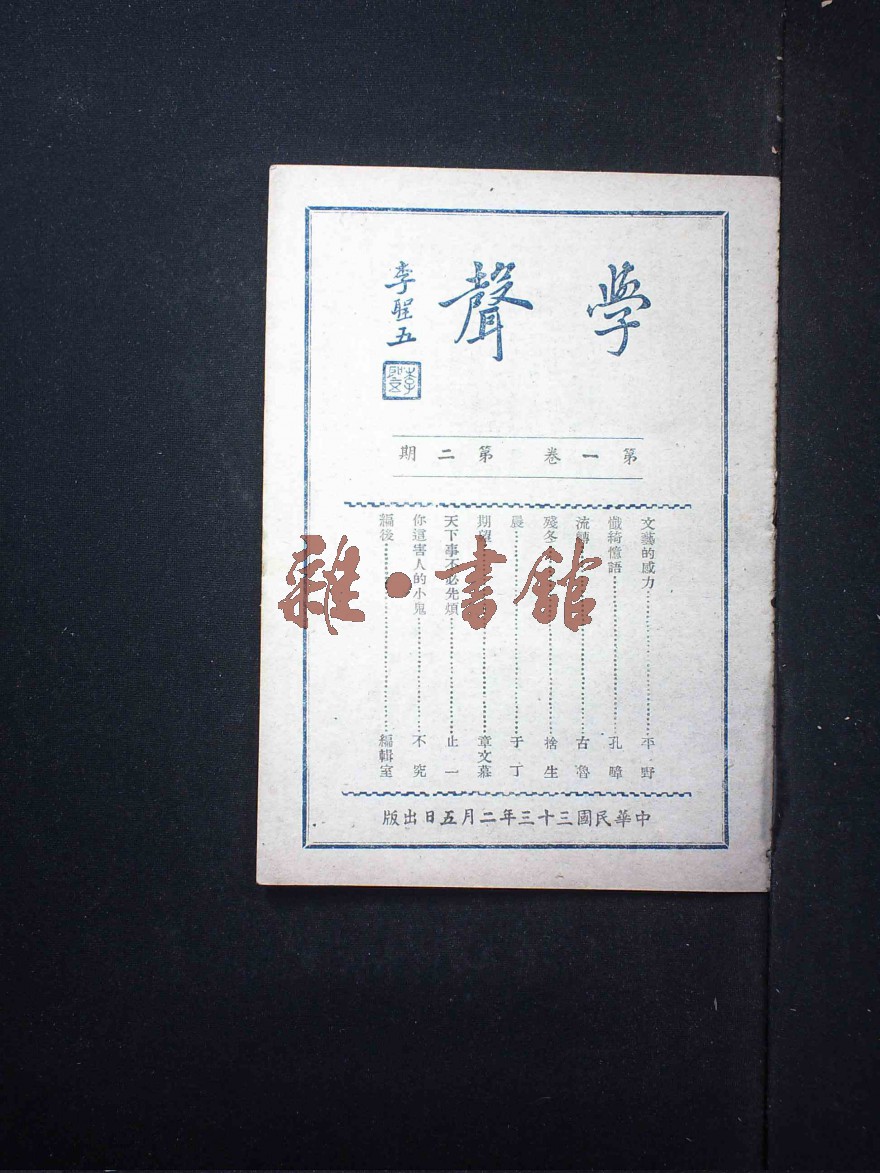 學聲
李聖五
第一卷 第二期
文藝的感力…………平野
懺綺憶語…………孔暐
流轉…………古魯
殘冬…………捨生
晨…………于丁
期望…………章文慕
天下事不必先煩…………止一
你這害人的小鬼…………不究
編後…………編輯室
中華民國三十三年二月五日出版
雜·書館